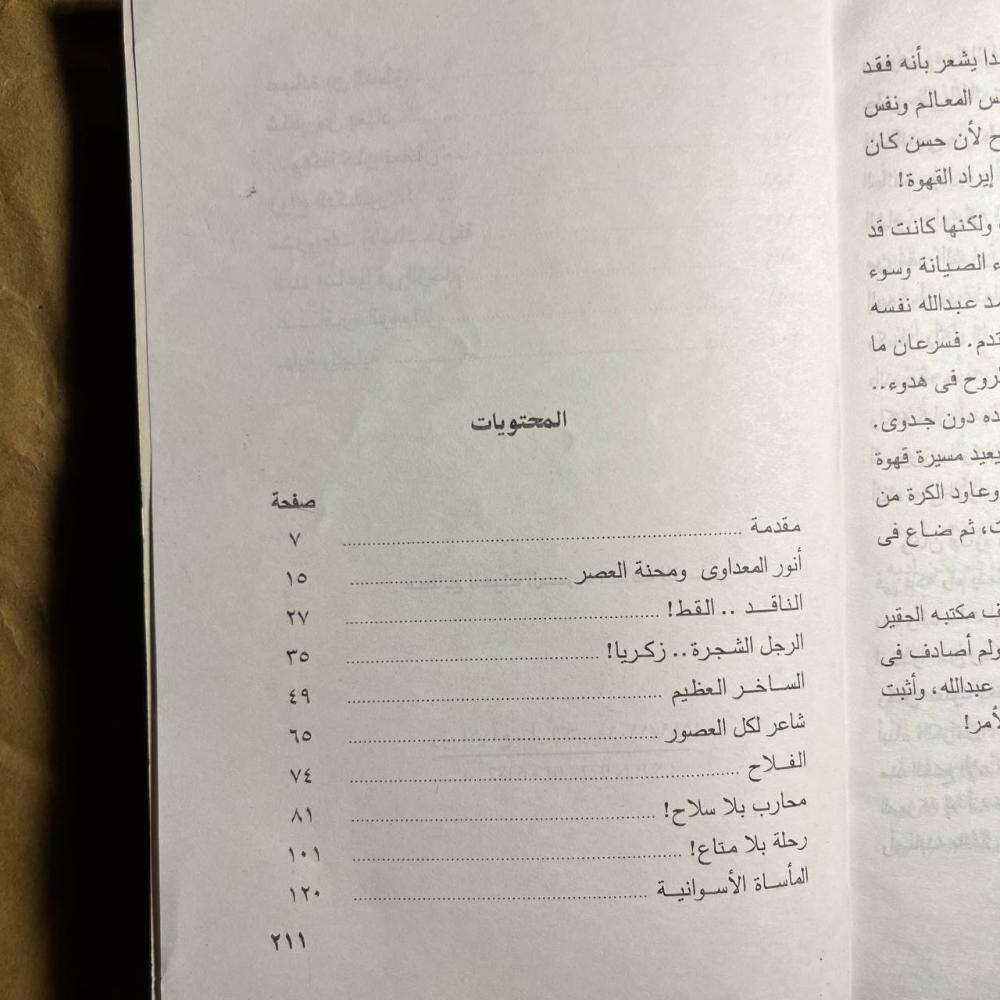 دا يشعر بأنه فقد
س المعالم ونفس
ح لأن حسن كان
إيراد القهوة!
ولكنها كانت قد
ء الصيانة وسوء
د عبدالله نفسه
تدم. فسرعان ما
روح فى هدوء..
ده دون جدوى.
يعيد مسيرة قهوة
وعاود الكرة من
ت، ثم ضاع فى
ف مكتبه الحقير
ولم أصادف فى
عبدالله، وأثبت
لأمر!
المحتويات
صفحة
مقدمة ٧
أنور المعداوى ومحنة العصر ١٥
الناقد .. القط! ٢٧
الرجل الشجرة.. زكريا! ٣٥
الساخر العظيم ٤٩
شاعر لكل العصور ٦٥
الفلاح ٧٤
محارب بلا سلاح! ٨١
رحلة بلا متاع! ١٠١
المأساة الأسوانية ١٢٠
٢١١